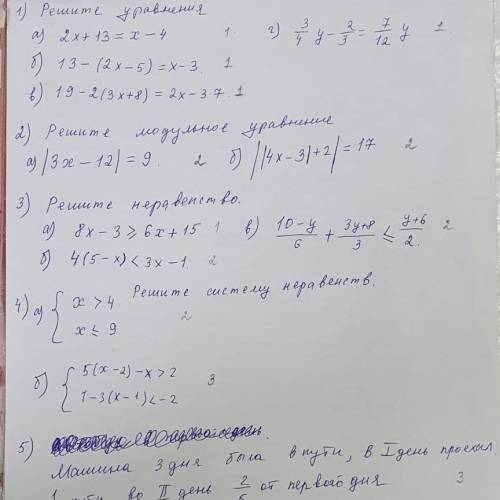 1) Решите уравнения
а) 2x+13=x-4 1. г) 3/4 y - 2/3 = 7/12 y 1.
б) 13-(2x-5)=x-3. 1
в) 19-2(3x+8)=2x-37. 1
2) Решите модульное уравнение
а) |3x-12|=9. 2 б) ||4x-3|+2|=17 2
3) Решите неравенство.
а) 8x-3≥6x+15 1 в) (10-y)/6 + (3y+8)/3 ≤ (y+6)/2. 2
б) 4(5-x)<3x-1. 2
4) Решите систему неравенств.
а) { x>4
x≤9 2
б) { 5(x-2)-x>2
1-3(x-1)<-2 3
5)
Машина 3 дня была в пути, в I день проехал
пути, во II день 2/5 от первого дня 3